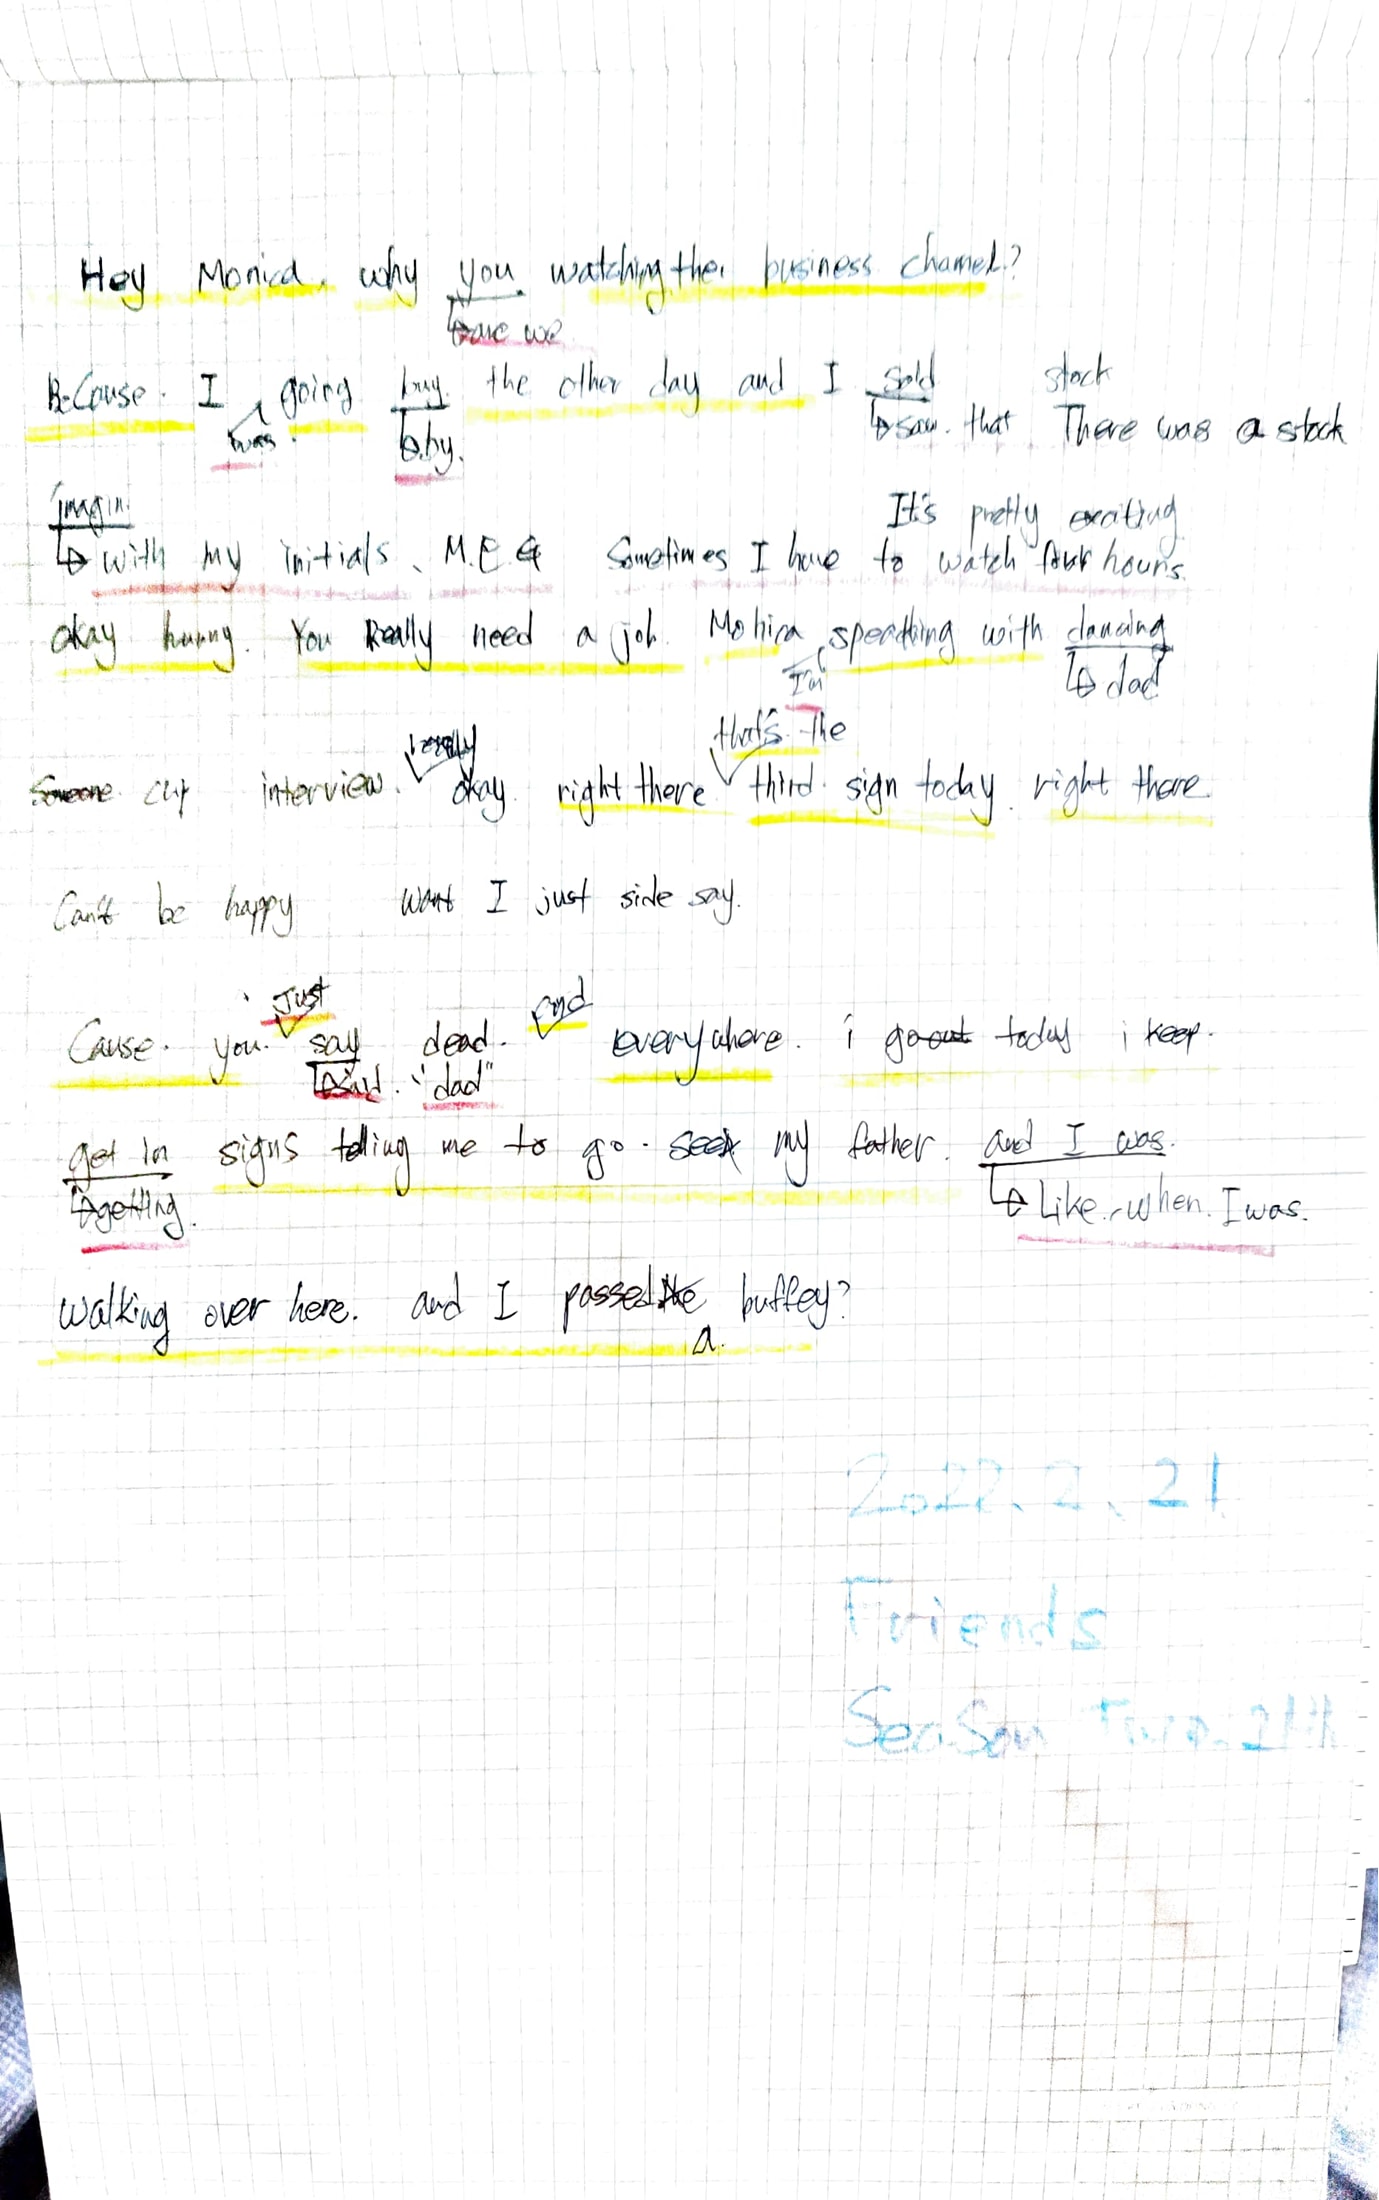 Hey Monica. why you watching the business channel?
are we
BeCause. I going buy. the other day and I sold stock
was. by. saw. that There was a stock
imagin. It's pretty exciting
with my initials. M.E.G Sometimes I have to watch four hours.
okay hunny. You Really need a job. Monica speaking with dancing
I'm dad
really that's the
Someone cup interview. okay. right there third sign today. right there
Can't be happy want I just side say.
Just and
Cause. you. say dead. everywhere. i go out today i keep.
said. "dad"
get in signs telling me to go. see my father. and I was.
getting. Like. when. I was.
walking over here. and I passed the buffey?
a.
2022. 2. 21
Friends
Season